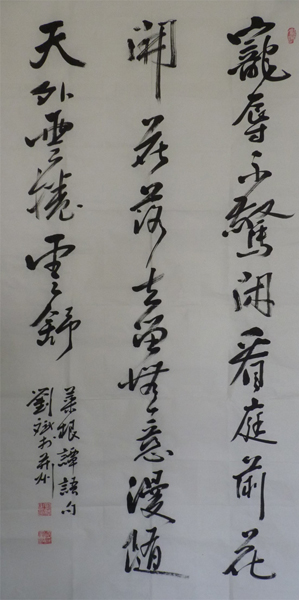 寵辱不驚閑看庭前花
開花落去留無意漫随
天外雲捲雲舒
菜根譚語句
劉斌於并州